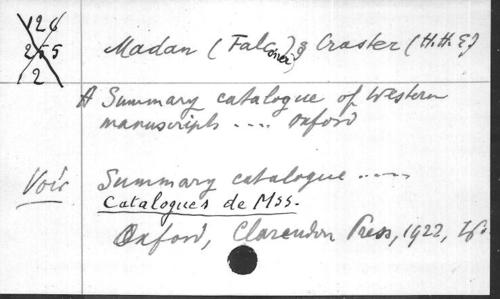 126
255
2
Madan (Falconer) & Craster (H.H.E)
A Summary catalogue of Western
manuscripts .... Oxford
Voir Summary catalogue .....
Catalogues de Mss.
Oxford, Clarendon Press, 1922,